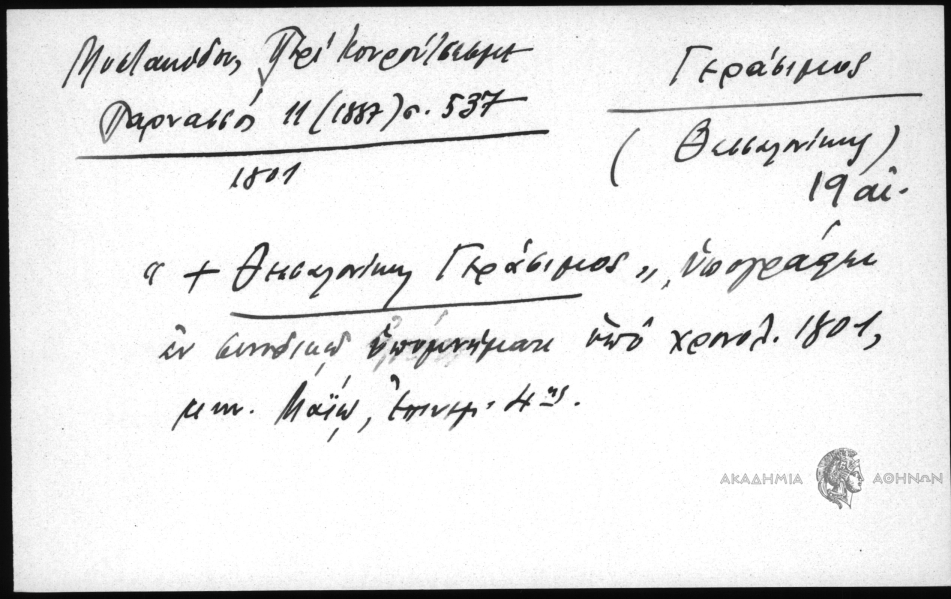 Μυστακίδου, Περί Κουρούτσεσμε
Παρνασσός 11 (1887) σ. 537
1801
Γεράσιμος
(Θεσσαλονίκης)
19 αἰ.
“ + Θεσσαλονίκης Γεράσιμος „ ὑπογράφει
ἐν συνοδικῷ ὑπομνήματι ὑπό χρονολ. 1801,
μην. Μαΐῳ, ἐπινεμ. 4ης.
ΑΚΑΔΗΜΙΑ ΑΘΗΝΩΝ